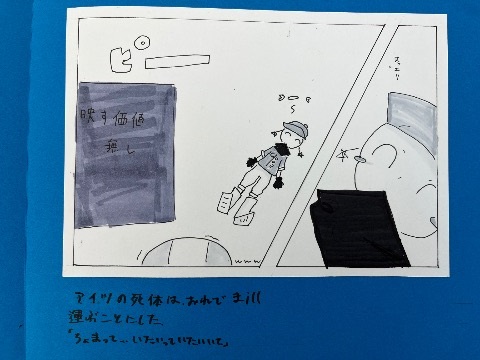 ピー
映す価値
無し
スッ
アイツの死体は、おれでまill
運ぶことにした
「ちょまって…いたいっていたいいた